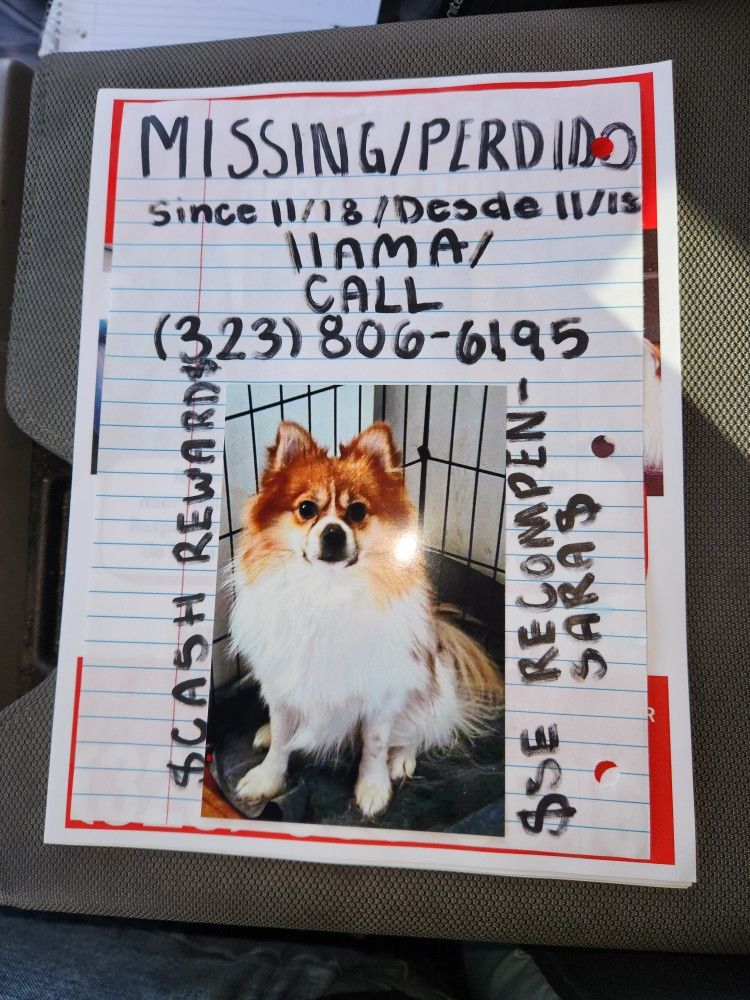 MISSING/PERDIDO
since 11/18/Desde 11/18
llAMA/
CALL
(323) 806-6195
$CASH REWARD$
$SE RECOMPEN-
SARA$